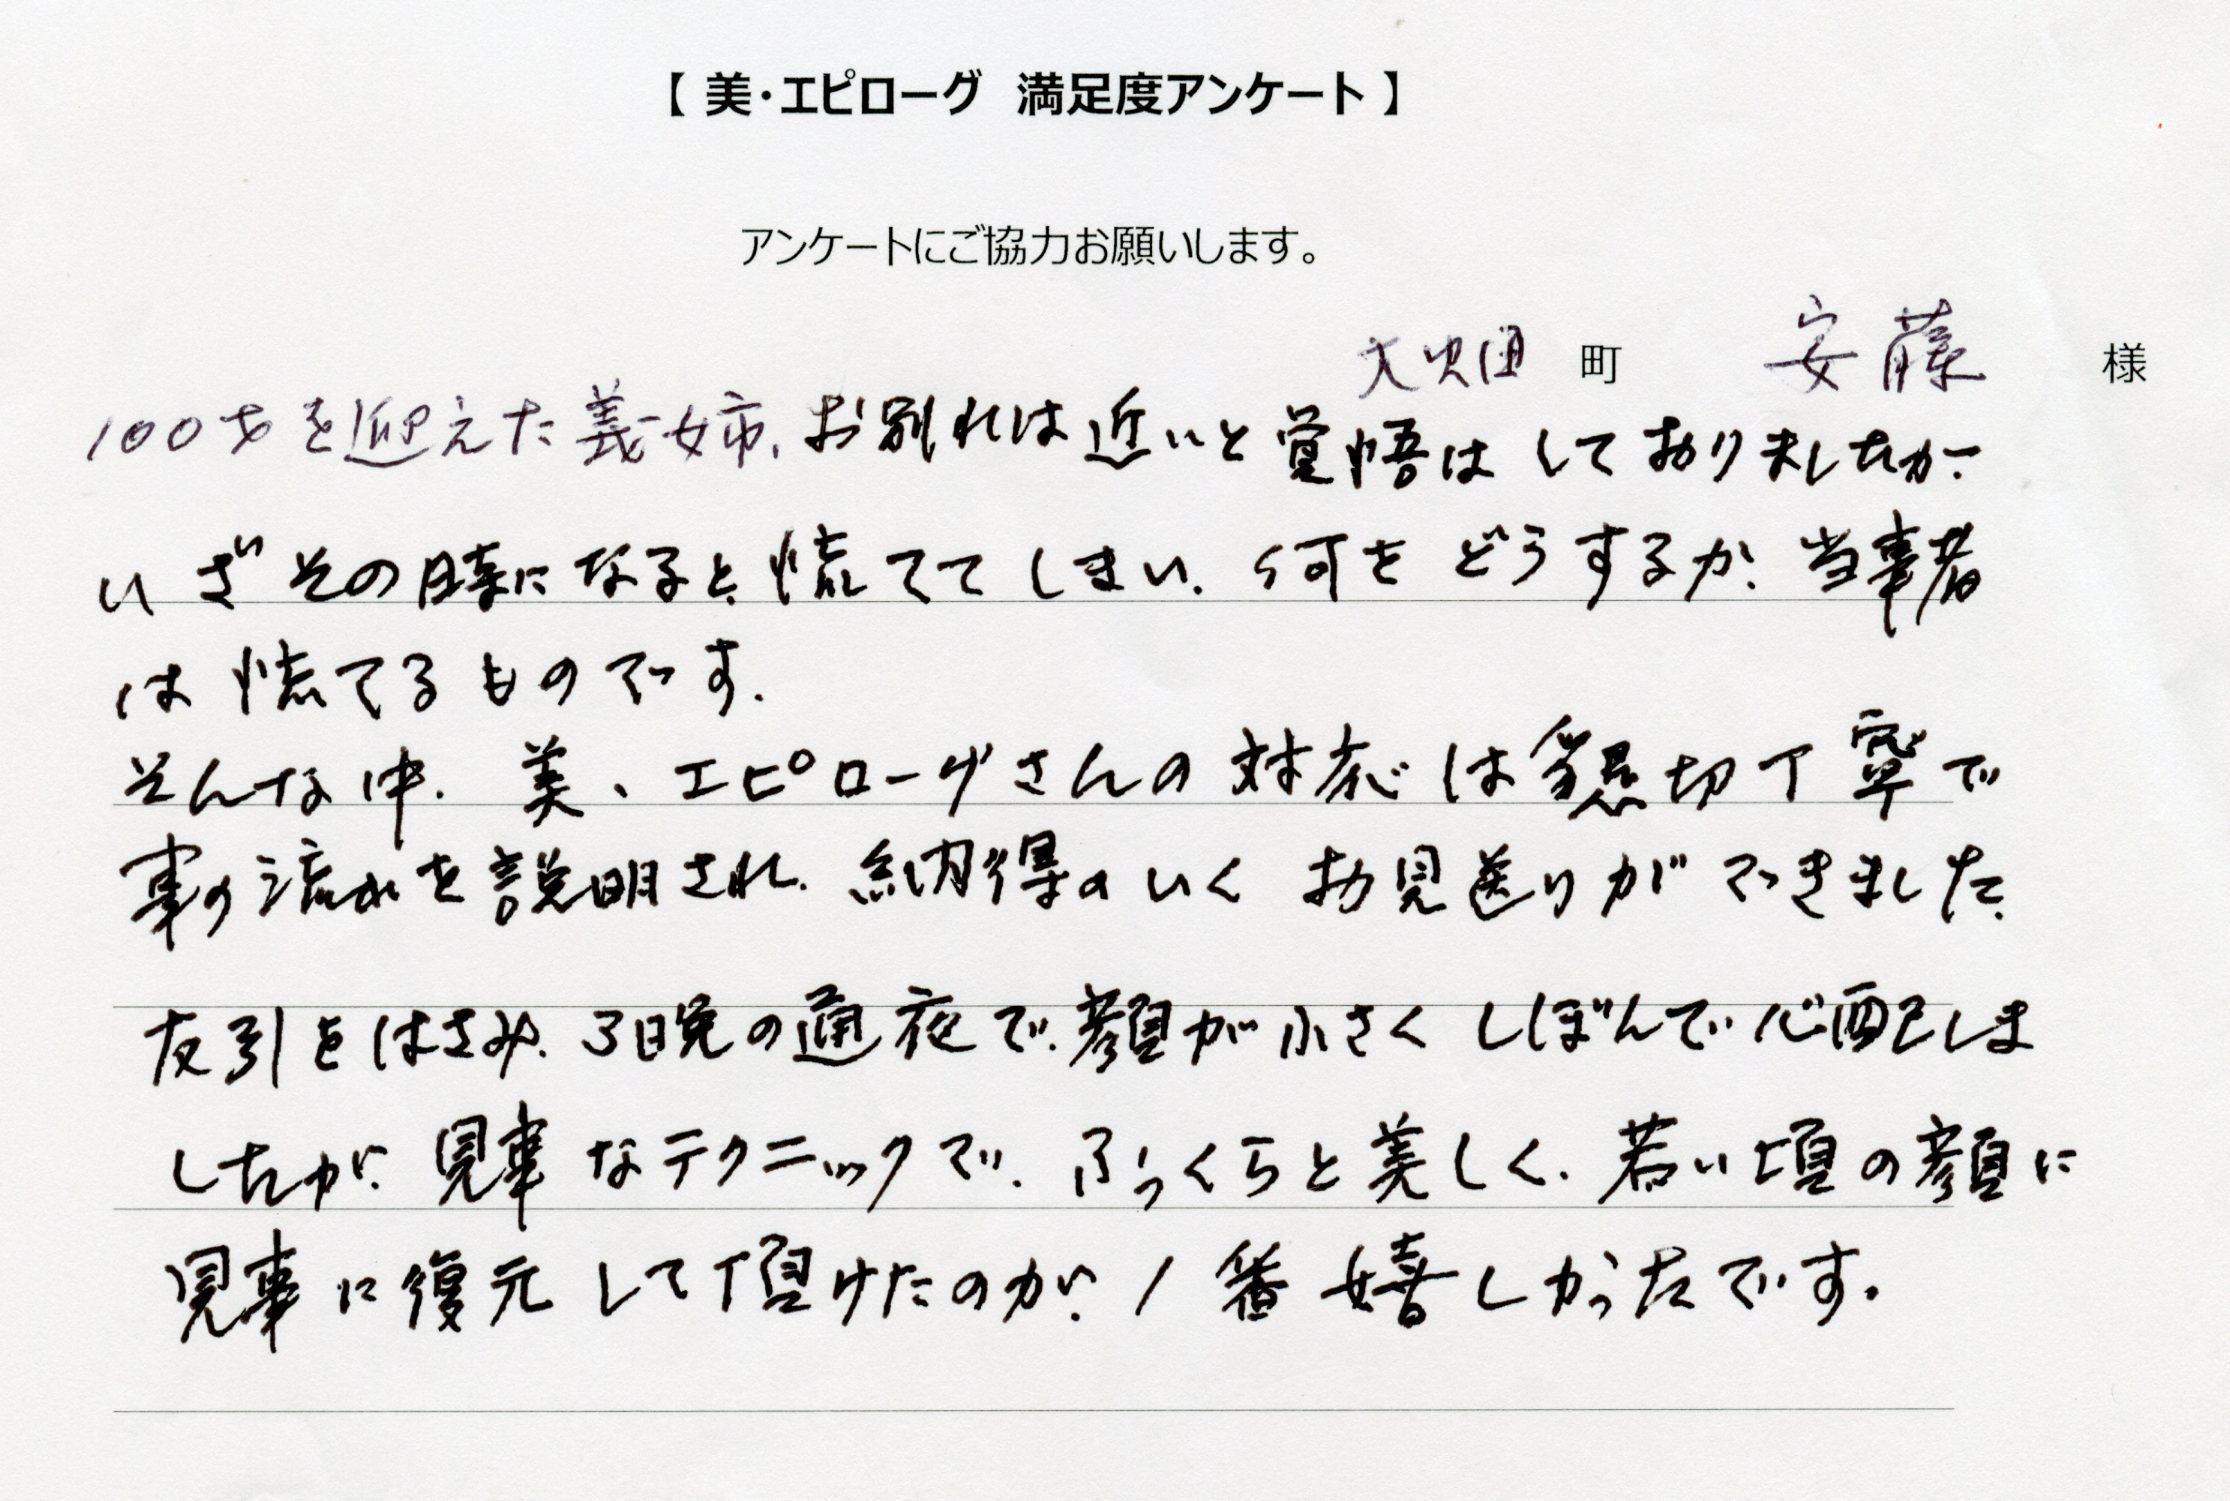 【 美・エピローグ 満足度アンケート 】
アンケートにご協力お願いします。
大畑 町 安藤 様
100才を迎えた義姉、お別れは近いと覚悟はしておりましたが
いざその時になると、慌ててしまい、何をどうするか、当事者
は慌てるものです。
そんな中、美、エピローグさんの対応は懇切丁寧で
事の流れを説明され、納得のいくお見送りができました。
友引をはさみ、3日晩の通夜で、顔が小さくしぼんで心配しま
したが、見事なテクニックで、ふっくらと美しく、若い頃の顔に
見事に復元して頂けたのが、1番嬉しかったです。